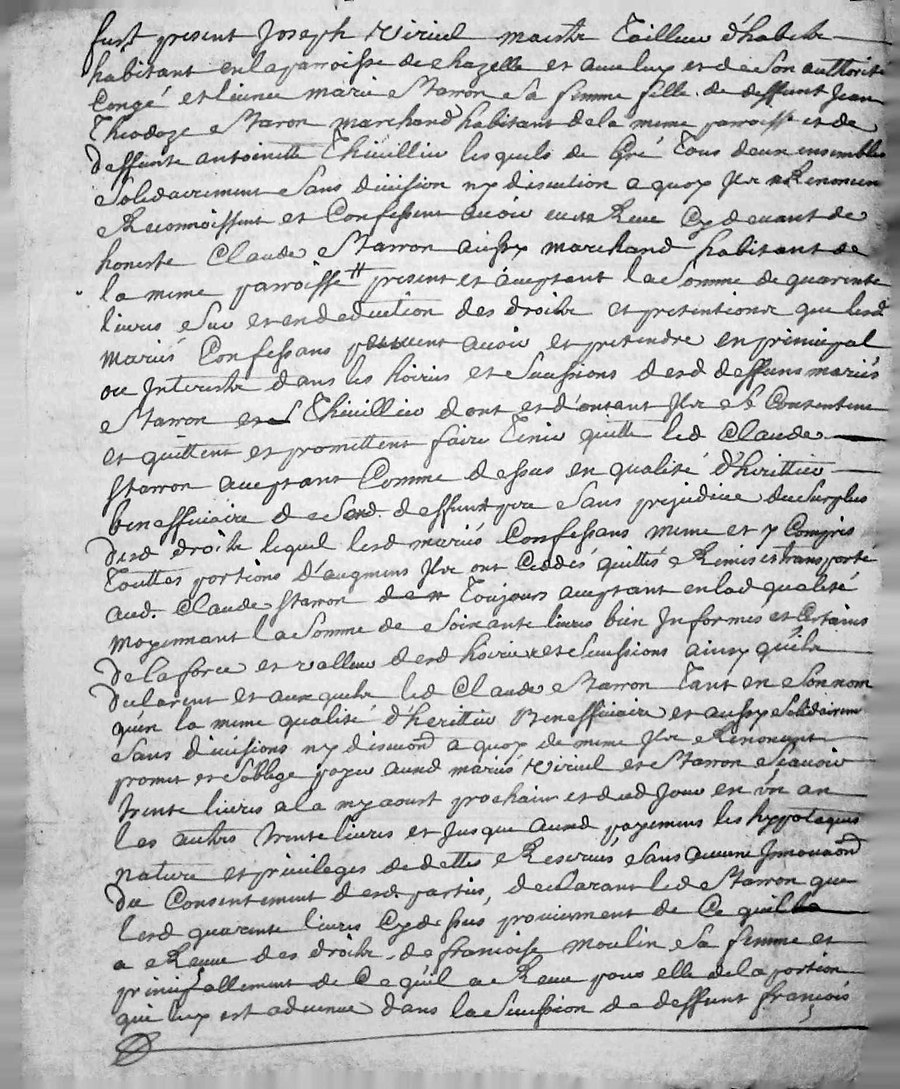 fust present Joseph viriul maistre Tailleur d'habitz
habitant en la parroisse de chazelle et avec luy et de son authorité
Congé et licence marie Starron sa femme fille de deffunt Jean
Theodoze Staron marchand habitant de la meme parroisse et de
deffunte antoinette Thivillier lesquels de Gré Tous deux ensembles
Solidairement Sans division ny discution a quoy Ilz Renoncent
Reconnoissent et Confessent avoir Receu Cy devant de
honeste Claude Starron aussy marchand habitant de
la meme parroisse present et aceptant la Somme de quarente
livres Sur et en deduction des droitz et pretentions que lesd
mariés Confessans peuvent avoir et pretendre en principal
ou Interestz dans les hoiries et Sucessions desd deffuns mariés
Starron et Thivillier dont et d'autant Ilz Se Contentent
et quittent et promettent faire Tenir quitte led Claude
Starron aceptant Comme dessus en qualité d'herittier
benefficiaire de Sond. deffunt pere Sans prejudice du Surplus
desd droitz lequel lesd mariés Confessans meme et y Compris
Touttes portions d'augmens Ilz ont Ceddés quittés Remis et transporté
aud. Claude Starron Toujours aceptant en lad qualité
moyennant la Somme de Soixante livres bien Informés et Certains
de la force et valleur desd hoiries et Sucessions ainsy qu'ilz
declarent et auxquelz led Claude Starron Tant en Son nom
qu'en la meme qualité d'herittier Benefficiaire et aussy Solidairemt
Sans divisions ny discuond a quoy de meme Ilz Renoncent
promet et Soblige payer auxd mariés viriul et Starron Scavoir
trente livres a la my aoust prochain et dud Jour en un an
les autres trente livres et Jusque auxd payemens les hyppoteques
nature et privileges de dettes Reservés Sans aucune Innovaond
du Consentement desd. parties, declarant led Starron que
lesd quarente livres Cy dessus proviennent de Ce quil
a Receu des droitz de francoise moulin Sa femme et
principallement de Ce qu'il a Receu pour elle de la portion
qui luy est advenue dans la Sucession de deffunt francois